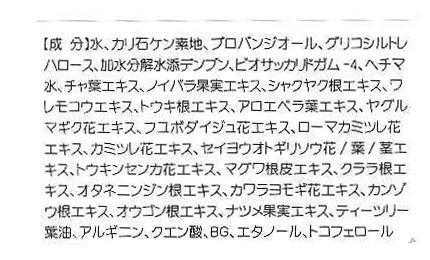 【成 分】水、カリ石ケン素地、プロパンジオール、グリコシルトレ
ハロース、加水分解水添デンプン、ビオサッカリドガム-4、ヘチマ
水、チャ葉エキス、ノイバラ果実エキス、シャクヤク根エキス、ワ
レモコウエキス、トウキ根エキス、アロエベラ葉エキス、ヤグル
マギク花エキス、フユボダイジュ花エキス、ローマカミツレ花
エキス、カミツレ花エキス、セイヨウオトギリソウ花/葉/茎エ
キス、トウキンセンカ花エキス、マグワ根皮エキス、クララ根エ
キス、オタネニンジン根エキス、カワラヨモギ花エキス、カンゾ
ウ根エキス、オウゴン根エキス、ナツメ果実エキス、ティーツリー
葉油、アルギニン、クエン酸、BG、エタノール、トコフェロール